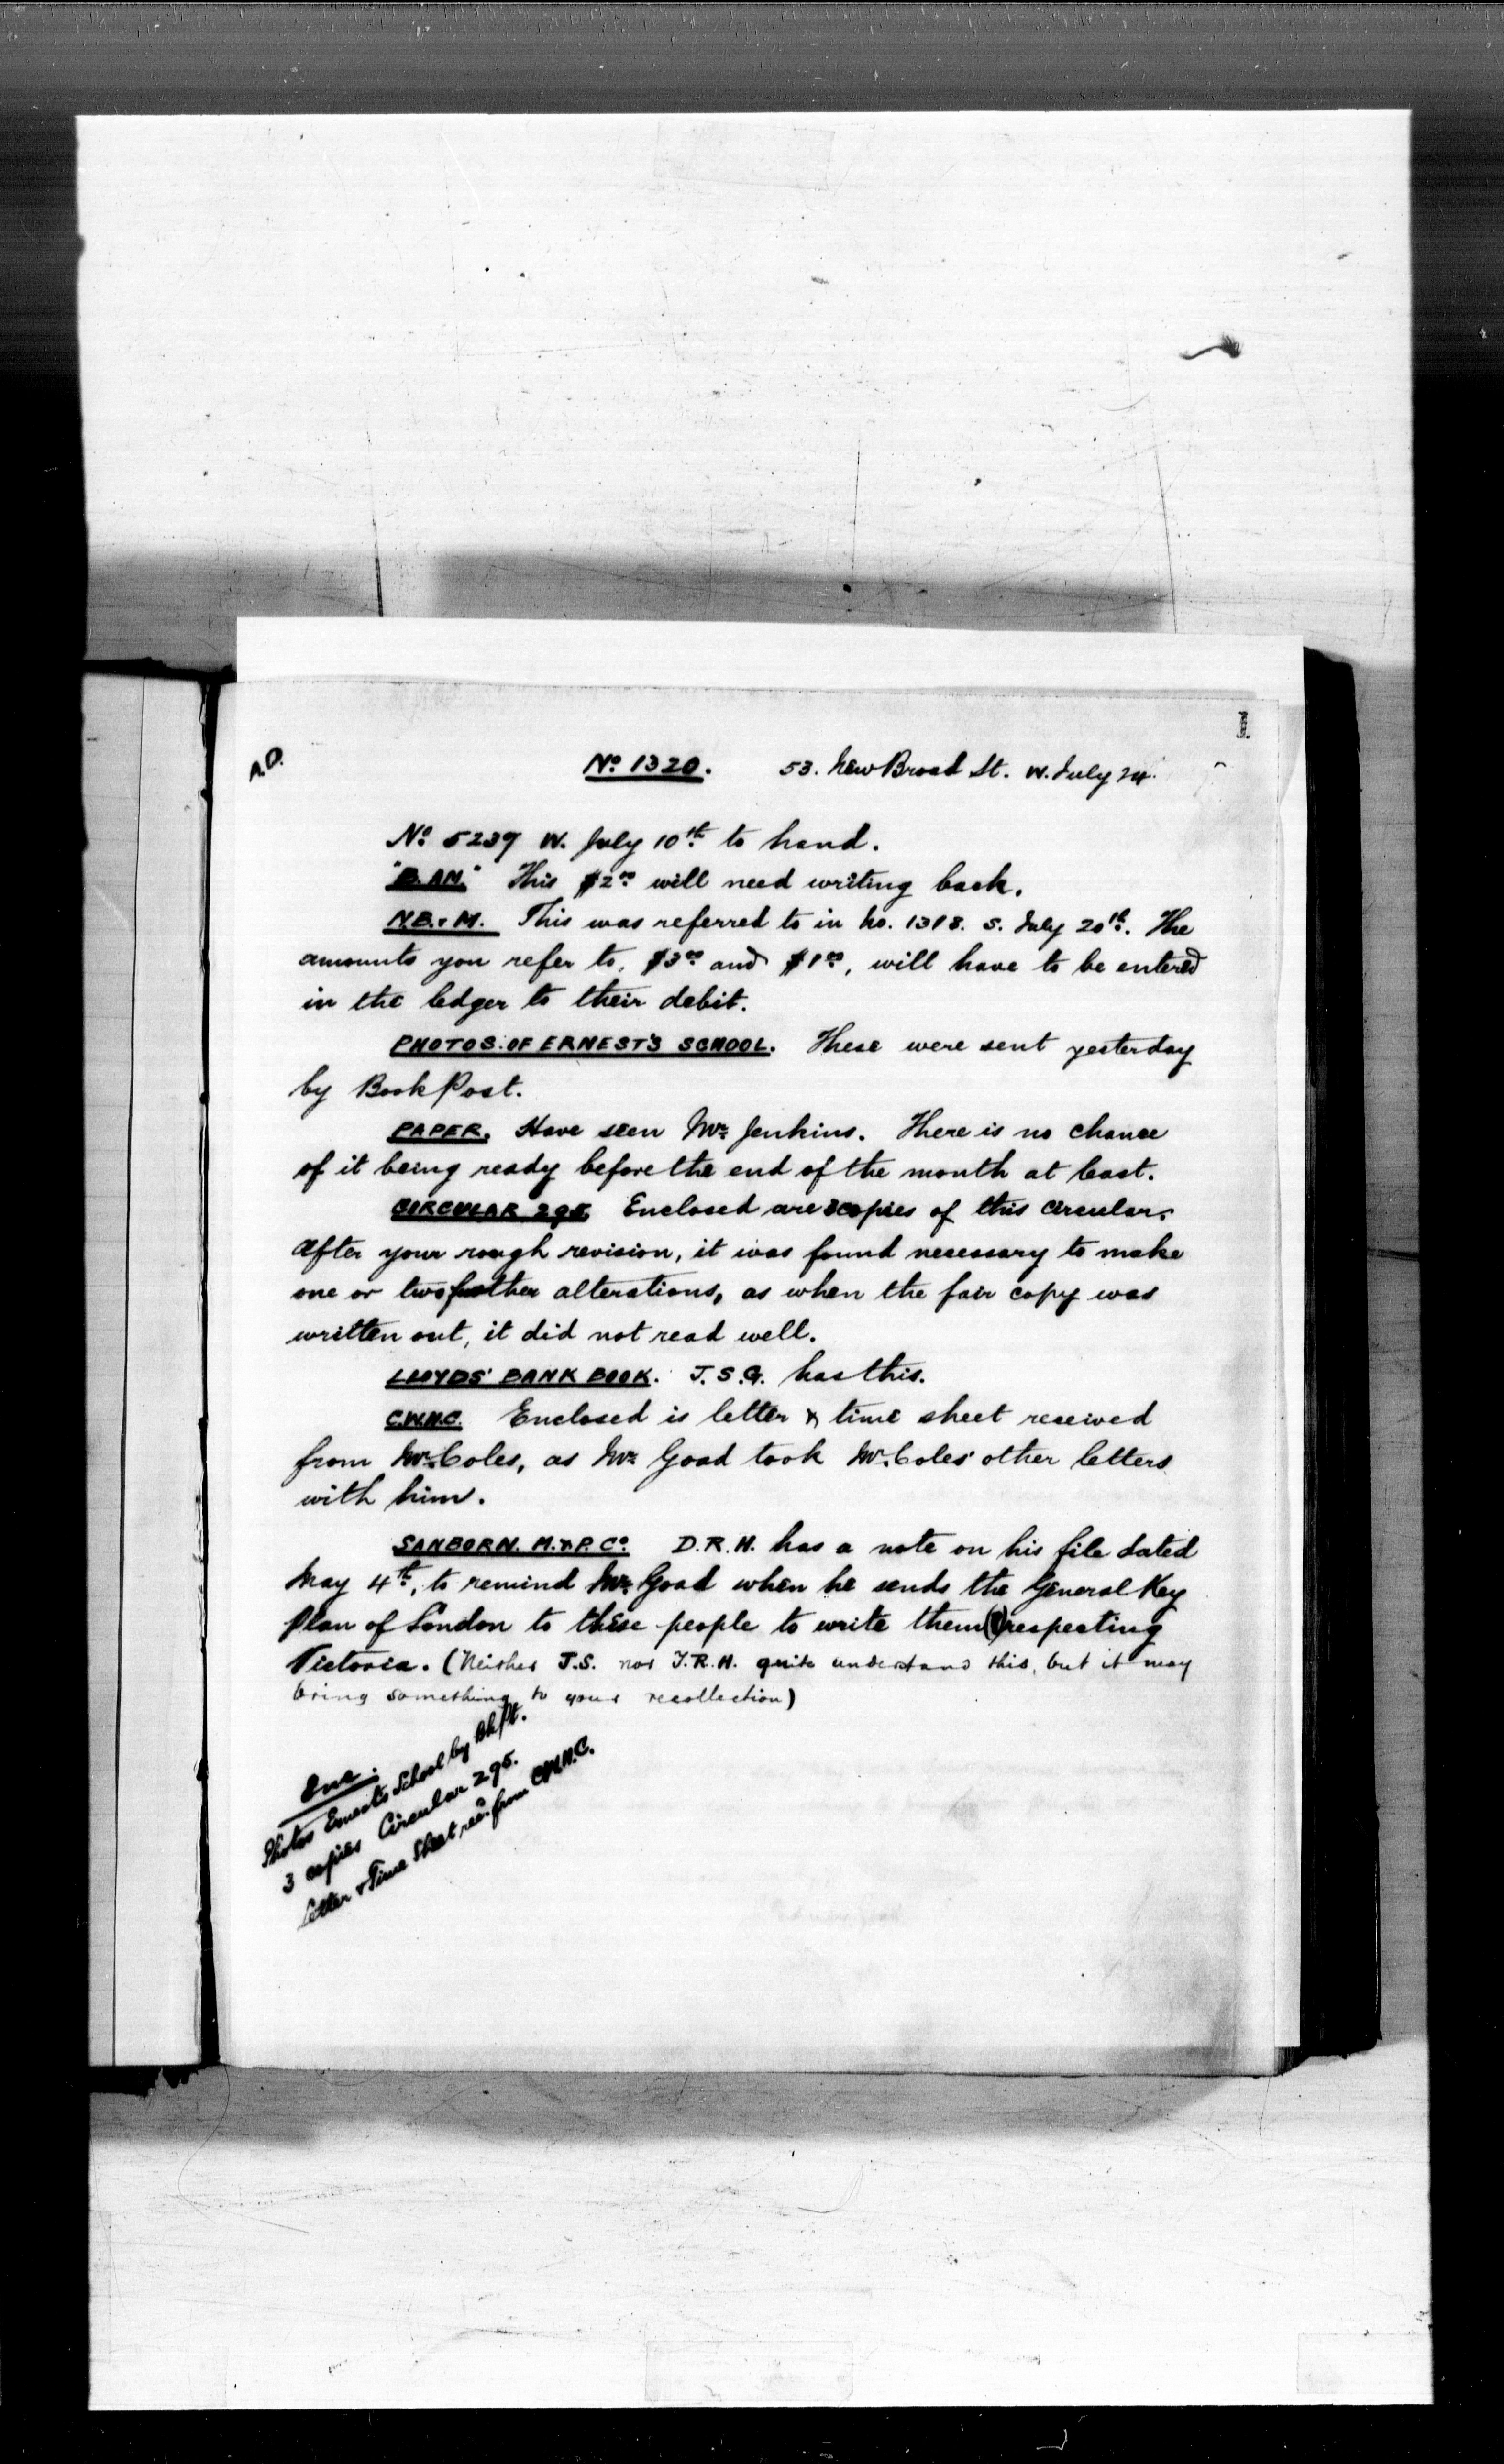 1
A.D.
No 1320. 53. New Broad St. W. July 24.
No 5239 W. July 10th to hand.
"B. AM." This $2.00 will need writing back.
N.B. & M. This was referred to in No. 1318. S. July 20th. The
amounts you refer to, $3.00 and $1.00, will have to be entered
in the ledger to their debit.
PHOTOS. OF ERNEST'S SCHOOL. These were sent yesterday
by Book Post.
PAPER. Have seen Mr. Jenkins. There is no chance
of it being ready before the end of the month at least.
CIRCULAR 295. Enclosed are 3 copies of this circular.
After your rough revision, it was found necessary to make
one or two further alterations, as when the fair copy was
written out, it did not read well.
LLOYDS' BANK BOOK. J.S.G. has this.
C.W.H.C. Enclosed is letter & time sheet received
from Mr. Coles, as Mr. Goad took Mr. Coles' other letters
with him.
SANBORN. M. & P. Co. D.R.H. has a note on his file dated
May 4th, to remind Mr. Goad when he sends the General Key
Plan of London to these people to write them respecting
Victoria. (Neither J.S. nor T.R.H. quite understand this, but it may
bring something to your recollection)
Enc.
Photos Ernest's School by Bk Pt.
3 copies Circular 295.
Letter & Time Sheet recd. from C.W.H.C.